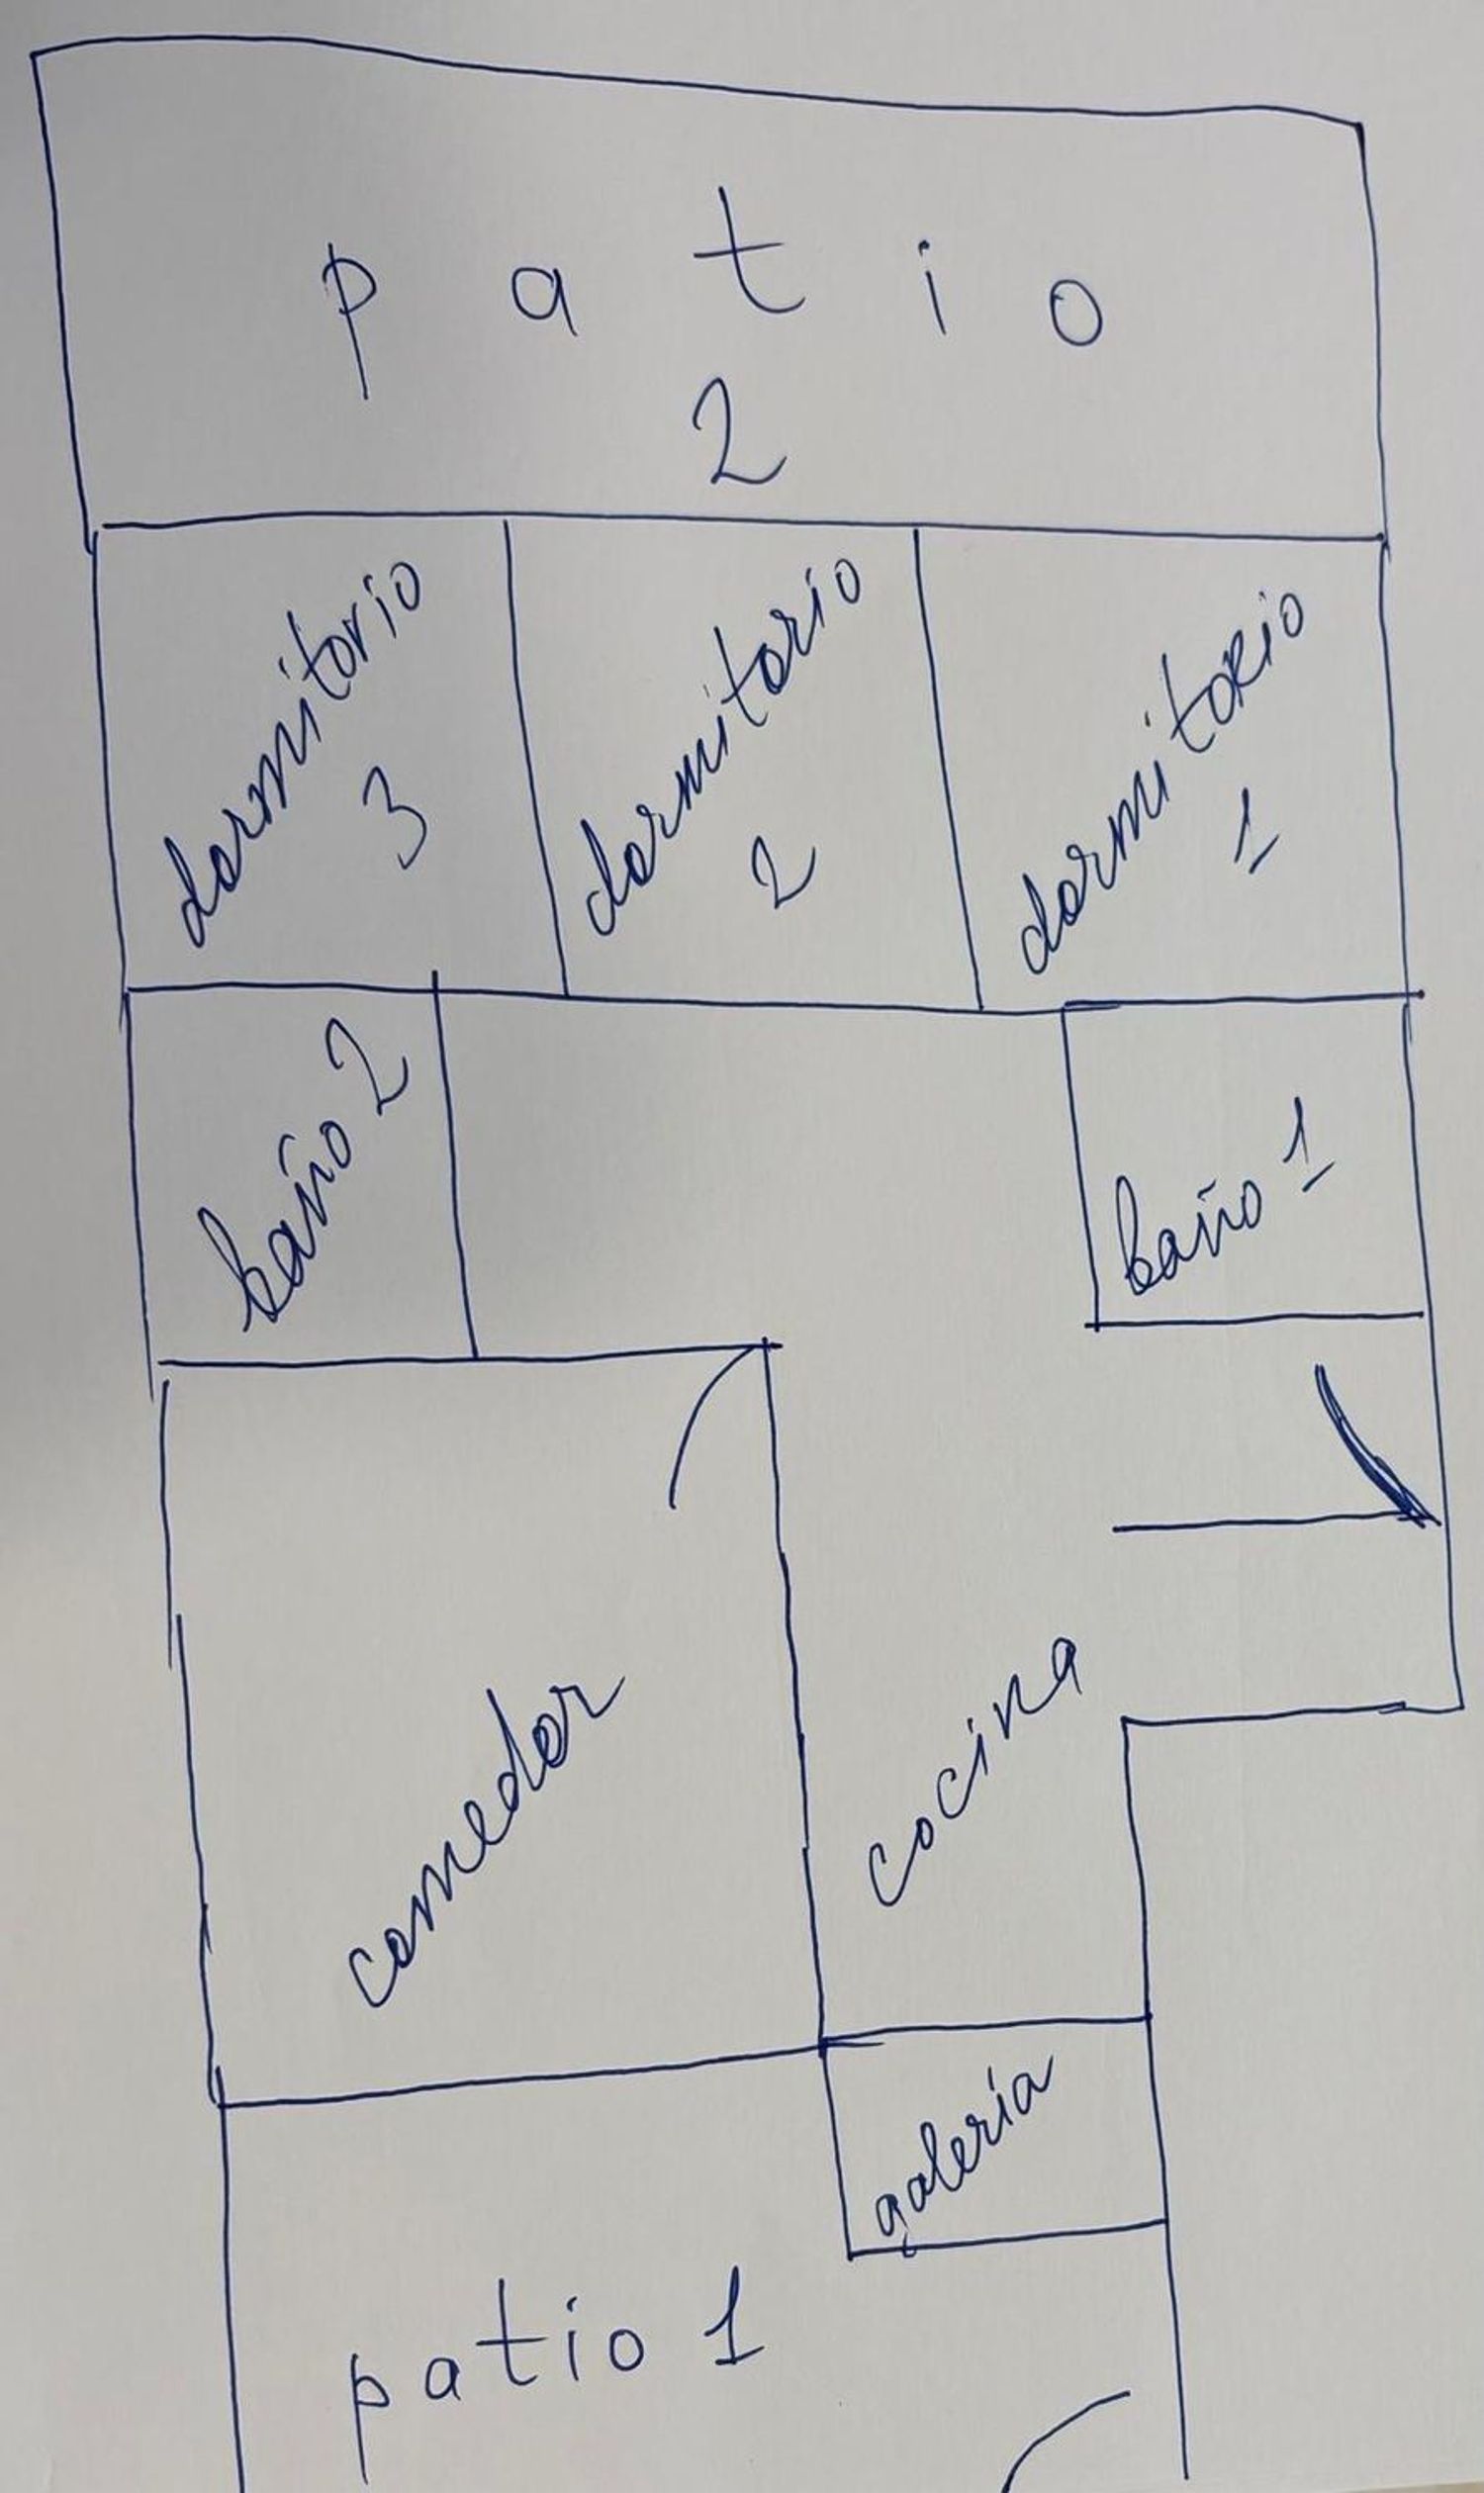 patio
2
dormitorio
3
dormitorio
2
dormitorio
1
baño 2
baño 1
comedor
cocina
galería
patio 1